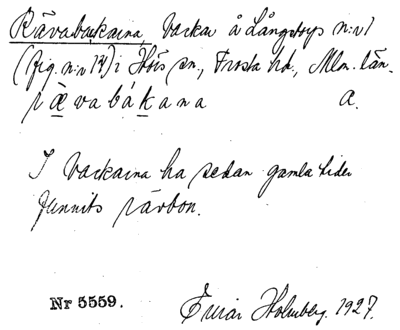 Rävabackarna, backar å Långstorps n:r 1
(fig. n:r 13) i Hörs sn., Frosta hd., Mlm. län.
rävabákana a.
I backarna ha sedan gamla tider
funnits rävbon.
Nr 5559. Einar Holmberg. 1927.